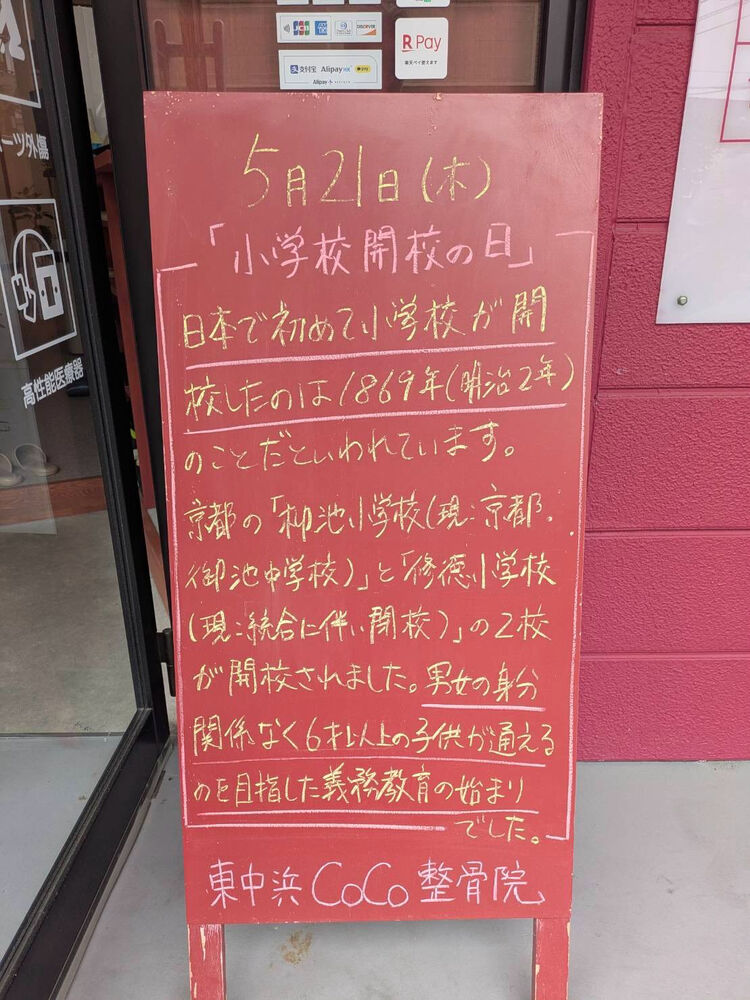 JCB
DISCOVER
支付宝 Alipay
Alipay+
R Pay
楽天ペイ使えます
ーツ外傷
高性能医療器
5月21日(木)
「小学校開校の日」
日本で初めて小学校が開
校したのは1869年(明治2年)
のことだといわれています。
京都の「柳池小学校(現:京都.
御池中学校)」と「修徳小学校
(現:統合に伴い閉校)」の2校
が開校されました。男女の身分
関係なく6才以上の子供が通える
のを目指した義務教育の始まり
でした。
東中浜CoCo整骨院